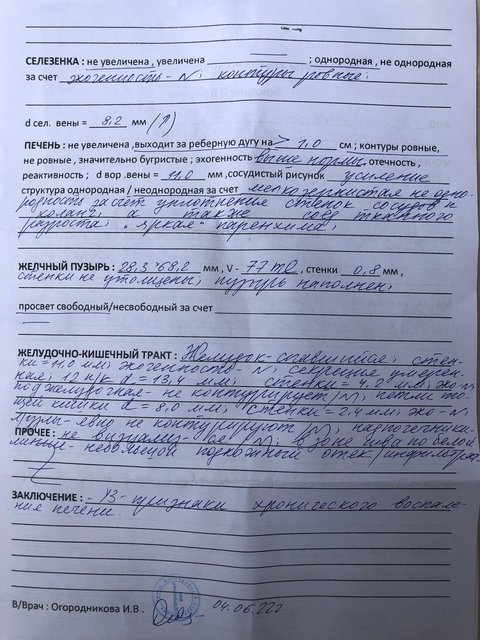 СЕЛЕЗЕНКА : не увеличена , увеличена ; однородная , не однородная
за счет эхогенность - N; контуры ровные;
d сел. вены = 8,2 мм (↑)
ПЕЧЕНЬ : не увеличена ,выходит за реберную дугу на > 1,0 см ; контуры ровные,
не ровные , значительно бугристые ; эхогенность выше нормы, отечность ,
реактивность ; d вор .вены = 11,0 мм ,сосудистый рисунок усиление
структура однородная / неоднородная за счет мелкозернистая не одно-
родность за счёт уплотнения стенок сосудов и
холанг; а также соед. тканного
разроста; "яркая" паренхима;
ЖЕЛЧНЫЙ ПУЗЫРЬ : 28,3*68,2 мм , V - 77 ml , стенки 0,8 мм ,
стенки не утолщены; пузырь наполнен;
просвет свободный/несвободный за счет
—
ЖЕЛУДОЧНО-КИШЕЧНЫЙ ТРАКТ : Желудок - спавшийся; стен-
ки = 11,0 мм; эхогенность - N; секреция умерен-
ная; 12 п/к d = 13,4 мм; стенки = 4,2 мм; эхо - N;
поджелудочная - не контурирует /N/; петли то-
щей кишки d = 8,0 мм; стенки = 2,4 мм; эхо - N;
- но не контурируют /N/; надпочечники
ПРОЧЕЕ : не визуализ - ся /N/; в зоне шва по белой
линии - небольшой подкожный отек/инфильтрат
ЗАКЛЮЧЕНИЕ : - УЗ - признаки хронического воспале-
ния печени.
В/Врач : Огородникова И.В . 04.06.22г